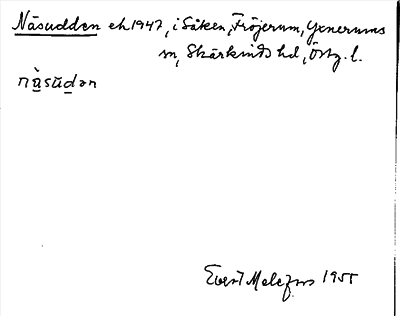 Näsudden ek 1947, i Såken, Fröjerum, Yxnerums
sn, Skärkinds hd, Östg. l.
nä̀sūdən
Evert Melefors 1955